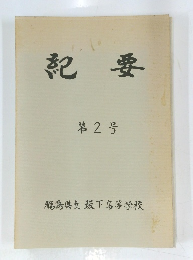 紀要
第2号
福島県立坂下高等学校